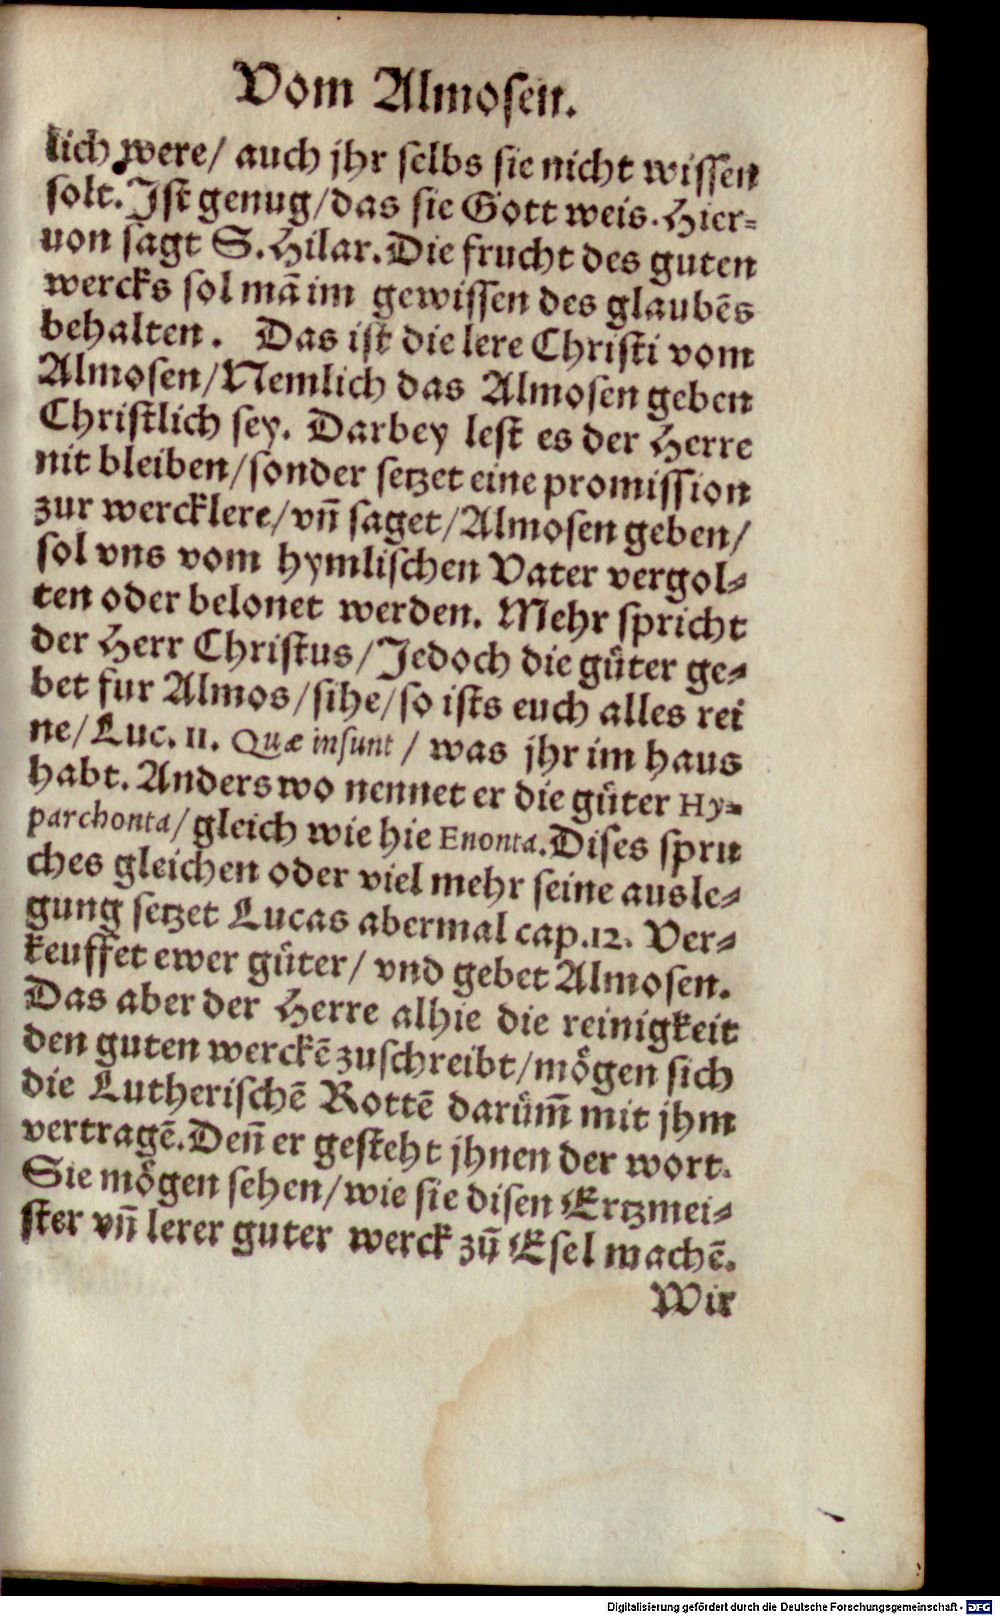 Vom Almosen.
lich were/ auch jhr selbs sie nicht wissen
solt. Ist genug/das sie Gott weis. Hier-
uon sagt S. Hilar. Die frucht des guten
wercks sol mā im gewissen des glaubēs
behalten. Das ist die lere Christi vom
Almosen/Nemlich das Almosen geben
Christlich sey. Darbey lest es der Herre
nit bleiben/sonder setzet eine promission
zur wercklere/vn̄ saget/Almosen geben/
sol vns vom hymlischen Vater vergol-
ten oder belonet werden. Mehr spricht
der Herr Christus/Jedoch die gůter ge-
bet fur Almos/sihe/so ists euch alles rei
ne/Luc. 11. Quæ insunt / was jhr im haus
habt. Anderswo nennet er die gůter Hy-
parchonta/gleich wie hie Enonta. Dises spru
ches gleichen oder viel mehr seine ausle-
gung setzet Lucas abermal cap. 12. Ver-
keuffet ewer gůter/ vnd gebet Almosen.
Das aber der Herre alhie die reinigkeit
den guten werckē zuschreibt/mögen sich
die Lutherischē Rottē darům̄ mit jhm
vertragē. Den̄ er gesteht jhnen der wort.
Sie mögen sehen/wie sie disen Ertzmei-
ster vn̄ lerer guter werck zū Esel machē.
Wir
Digitalisierung gefördert durch die Deutsche Forschungsgemeinschaft - DFG